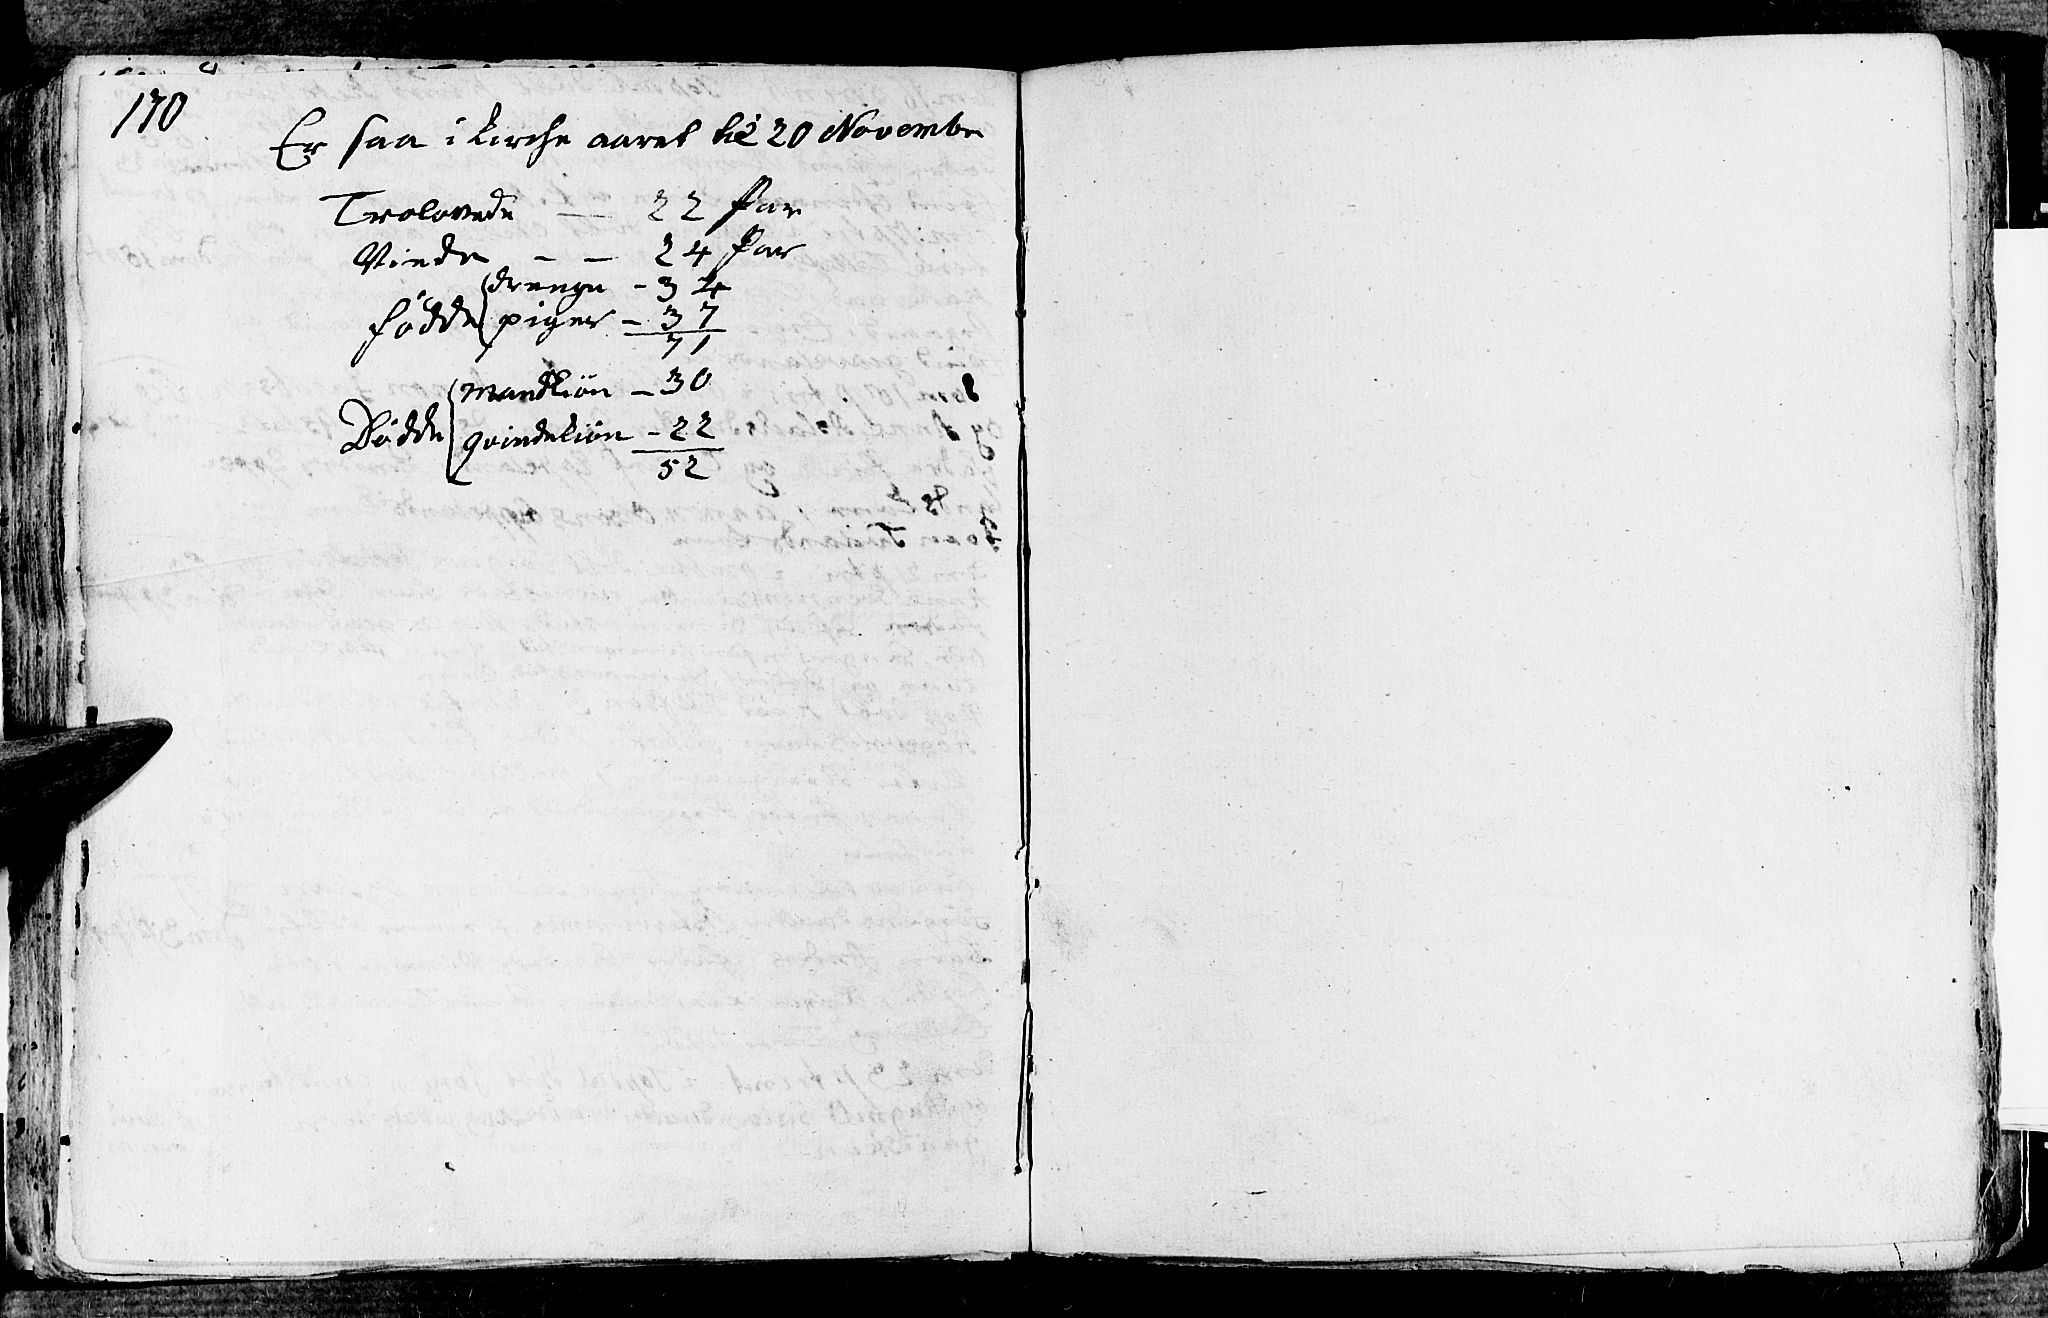 170
Er saa i Kirche aaret til 20 Novembr
Trolovede — 22 Par
Viede — — 24 Par
födde drenge - 34
piger - 37
71
Dödde mandkiön - 30
qvindekiön - 22
52